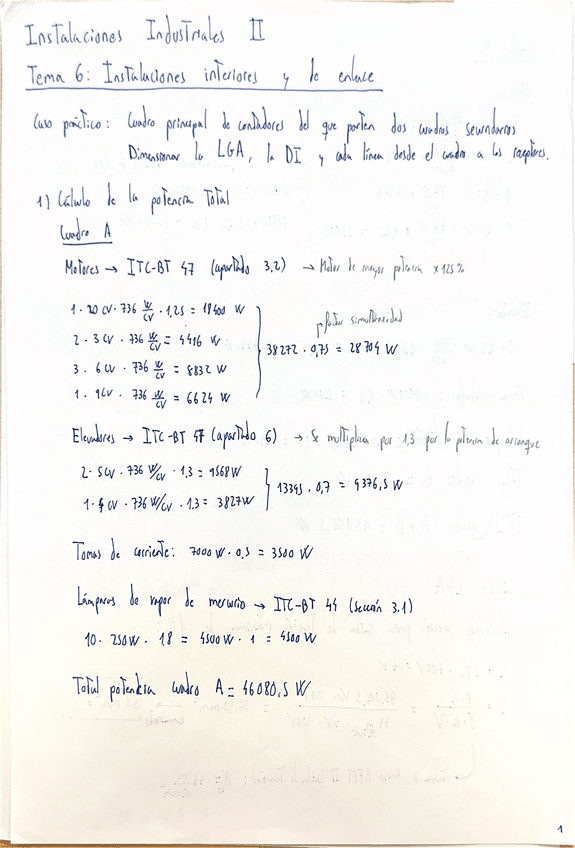 Instalaciones Industriales II
Tema 6: Instalaciones interiores y de enlace
Caso práctico: Cuadro principal de contadores del que parten dos cuadros secundarios
Dimensionar la LGA, la DI y cada línea desde el cuadro a los receptores.
1) Cálculo de la potencia Total
Cuadro A
Motores → ITC-BT 47 (apartado 3.2) → Motor de mayor potencia x125%
1 · 20 CV · 736 W/CV · 1,25 = 18400 W
factor simultaneidad
2 · 3 CV · 736 W/CV = 4416 W
38272 · 0,75 = 28704 W
3 · 6 CV · 736 W/CV = 8832 W
1 · 9 CV · 736 W/CV = 6624 W
Elevadores → ITC-BT 47 (apartado 6) → Se multiplica por 1,3 por la potencia de arranque
2 · 5 CV · 736 W/CV · 1.3 = 9568 W
13395 · 0,7 = 9376,5 W
1 · 4 CV · 736 W/CV · 1.3 = 3827 W
Tomas de corriente: 7000 W · 0,5 = 3500 W
Lámparas de vapor de mercurio → ITC-BT 44 (sección 3.1)
10 · 250 W · 1.8 = 4500 W · 1 = 4500 W
Total potencia cuadro A = 46080,5 W
1